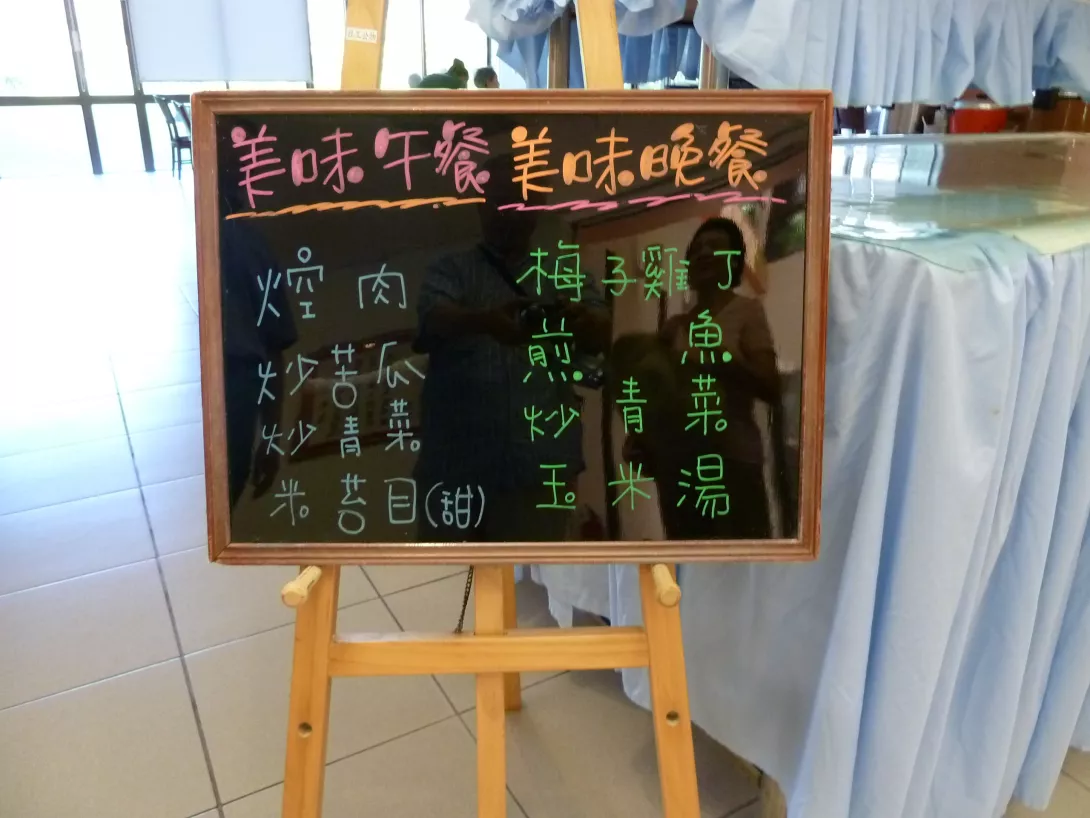 美味午餐
焢肉
炒苦瓜
炒青菜
米苔目(甜)
美味晚餐
梅子雞丁
煎魚
炒青菜
玉米湯